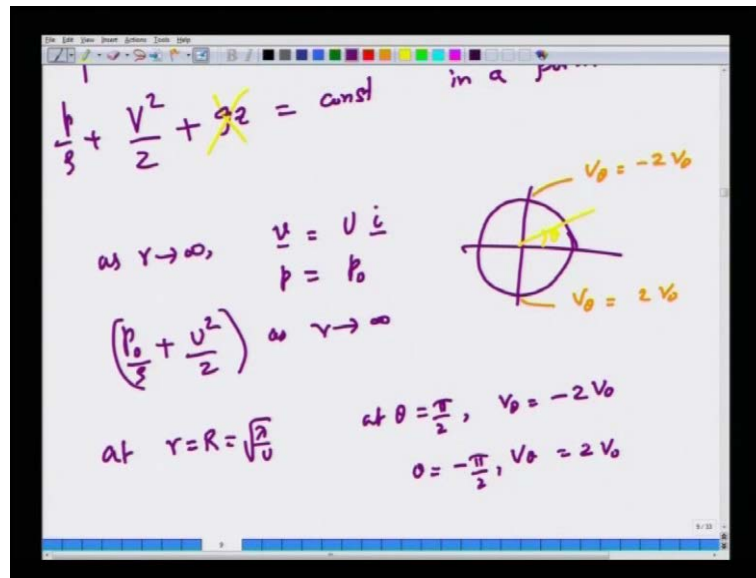 File Edit View Insert Actions Tools Help
p/ρ + V²/2 + gz = const in a
V_θ = -2 V_0
as r→∞, v = U i
p = p_0
θ
V_θ = 2 V_0
(p_0/ρ + U²/2) as r→∞
at r=R=√(λ/U)
at θ = π/2, V_θ = -2 V_0
θ = -π/2, V_θ = 2 V_0
9/33
9